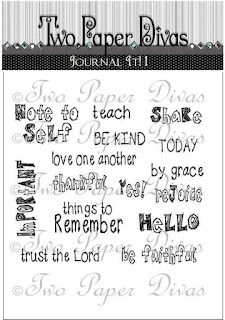 Two Paper Divas
Journal It! 1
©Two Paper Divas
Note to
Self
teach
Shake
BE KIND
TODAY
love one another
by grace
IMPORTANT
thankful
Yes!
rejoice
©Two Paper Divas
things to
Remember
HELLO
trust the Lord
be faithful
©Two Paper Divas